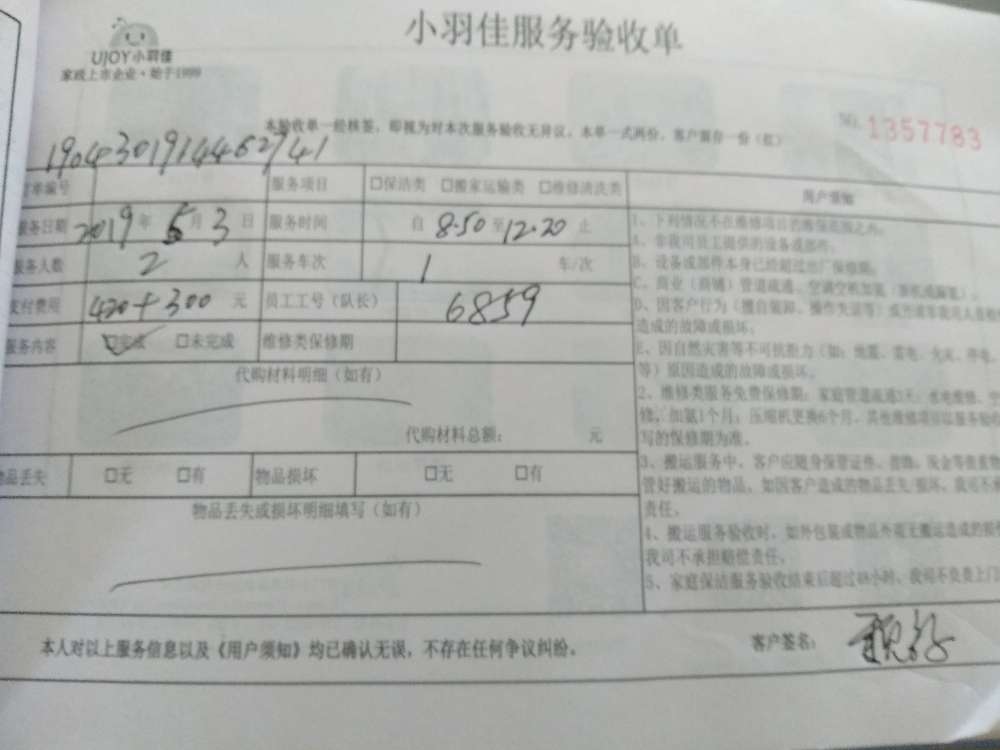 小羽佳服务验收单
UJOY小羽佳
家政上市企业·始于1999
本验收单一经核签，即视为对本次服务验收无异议，本单一式两份，客户留存一份（红）
NO. 1357783
1904301914462741
订单编号 服务项目 □保洁类 □搬家运输类 □维修清洗类
服务日期 2019年5月3日 服务时间 自8:50至12:20止
服务人数 2人 服务车次 1 车/次
支付费用 420+300元 员工工号（队长） 6859
服务内容 ☑完成 □未完成 维修类保修期
代购材料明细（如有）
代购材料总额： 元
物品丢失 □无 □有 物品损坏 □无 □有
物品丢失或损坏明细填写（如有）
用户须知
1、下列情况不在维修项目的维保范围之内。
A、非我司员工提供的设备或部件。
B、设备或部件本身已经超过出厂保修期。
C、商业（商铺）管道疏通、空调空机加氨
D、因客户行为（擅自装卸、操作失误等）
造成的故障或损坏。
E、因自然灾害等不可抗拒力（如：地震、雷电、火灾、停电
等）原因造成的故障或损坏。
2、维修类服务免费保修期：家庭管道疏通3天；水电维修、空
修，加氨1个月；压缩机更换6个月，其他维修项目以服务验收
写的保修期为准。
3、搬运服务中，客户应随身保管证件、首饰、现金等贵重物
管好搬运的物品，如因客户造成的物品丢失/损坏，我司不承
责任。
4、搬运服务验收时，如外包装或物品外观无搬运造成的损
我司不承担赔偿责任。
5、家庭保洁服务验收结束后超过48小时，我司不负责上门
本人对以上服务信息以及《用户须知》均已确认无误，不存在任何争议纠纷。
客户签名：